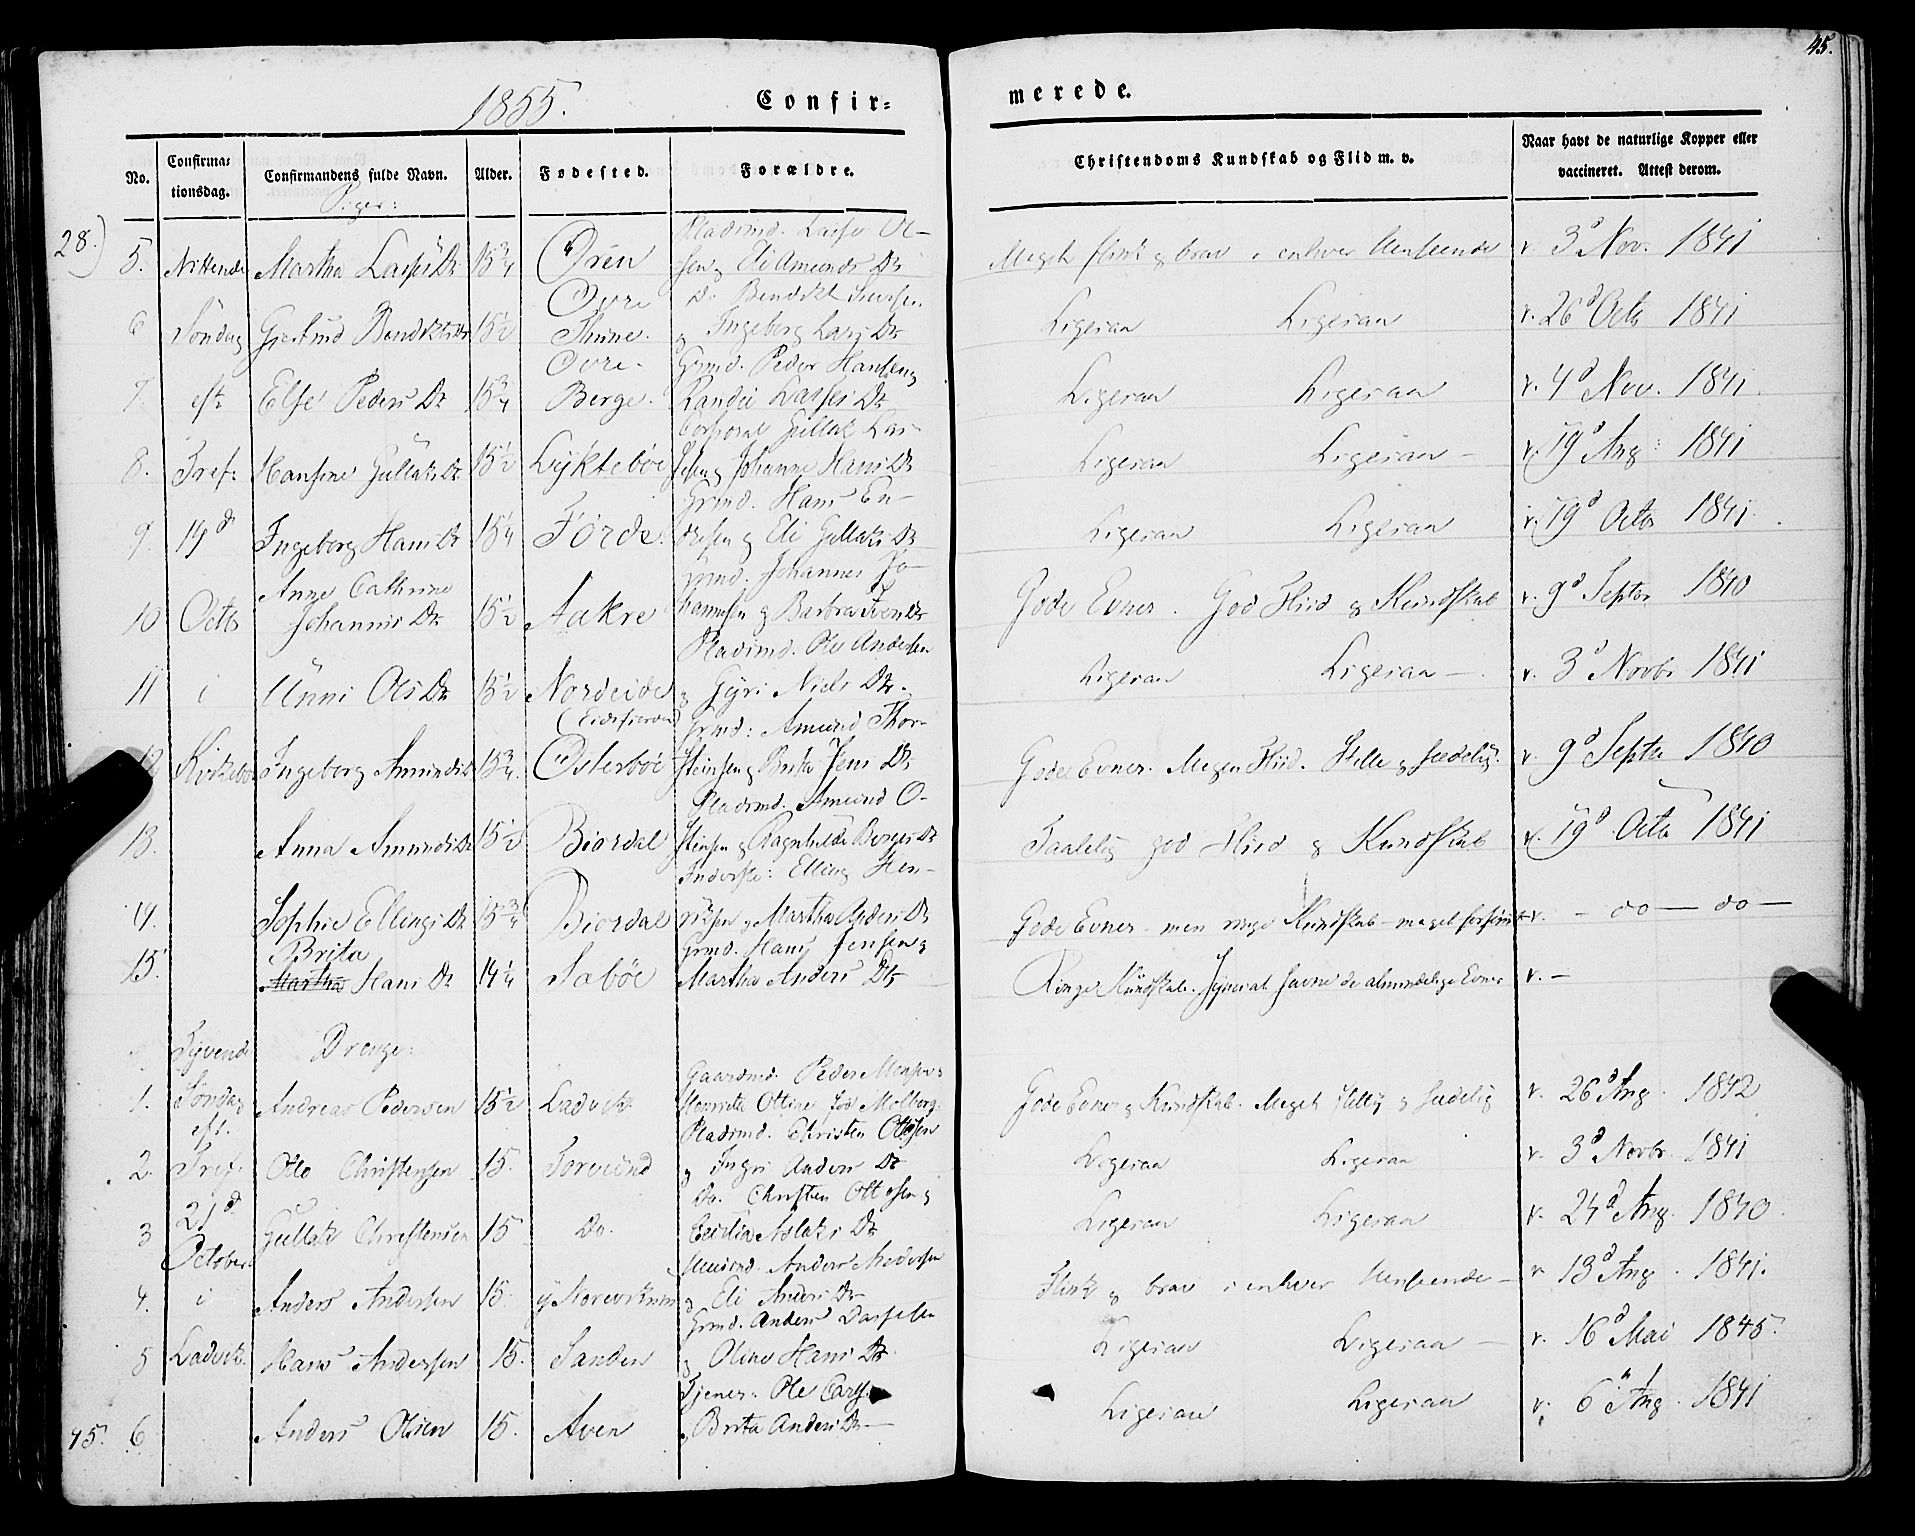 45.
1855. Confir- merede.
No. Confirma-tionsdag. Confirmandens fulde Navn. Alder. Fødested. Forældre. Christendoms Kundskab og Flid m. v. Naar havt de naturlige Kopper eller vaccineret. Attest derom.
Piger:
28.)
Pladsmd. Lasse Ol-
5. Nittende Martha Lasses Dr 15 3/4 Øren sen og Eli Amunds Dr Meget flink og brav i enhver Henseende v. 3d Nov. 1841
Øvre Do Bendikt
6 Søndag Giertrud Bendikts Dr 15 1/2 Thune. og Ingeborg Lars Dr Ligesaa Ligesaa v. 26d Octb 1841
Øvre. Grmd. Peder Hansen og
7. eft. Else Peders Dr 15 3/4 Berge. Randi Lasses Dr Ligesaa Ligesaa v. 4d Nov. 1841.
Corporal Gullak Las-
8. Tref. Hansine Gullaks Dr 15 1/2 Lyktebøe sesen og Johanne Hans Dr Ligesaa Ligesaa - v. 19d Aug: 1841
Grmd. Hans En-
9. 19d Ingeborg Hans Dr 15 1/4 Førde. dresen og Eli Gullaks Dr Ligesaa Ligesaa v. 19d Octb 1841.
Anne Cathrine Grmd. Johannes Jo-
10 Octb Johannis Dr 15 1/2 Aakre hannesen og Barbra Ivers Dr Gode Evner. God Flid og Kundskab v. 9d Septbr 1840
Pladsmd. Ole Andersen
11 i Unni Ols Dr 15 1/2 Nordeide og Gyri Niels Dr. Ligesaa Ligesaa - v. 3d Novbr 1841
(Eidsfiorden) Grmd: Amund Thor-
12 Kirkebøe Ingeborg Amunds Dr 15 3/4 Østerbøe steinsen og Brita Jens Dr Gode Evner. Megen Flid. Stille og sædelig. v. 9d Septbr 1840
Pladsmd. Amund O-
13. Anna Amunds Dr 15 1/2 Biordal steinsen og Ragnhilde Børges Dr Taalelig god Flid og Kundskab v. 19d Octb 1841
Inderste: Elling Hen-
14. Sophie Ellings Dr 15 3/4 Biordal riksen og Martha Anders Dr Gode Evner - men ringe Kundskab - meget forsømt v. - do - do -
Brita Grmd. Hans Jensen og
15. Martha Hans Dr 14 1/4 Sæbøe Martha Anders Dr Ringe Kundskab. Synes at savne de almindelige Evner v. -
Tyvende Drenge:
Gaardmd. Peder Monsen og
1. Søndag Andreas Pedersen 15 1/2 Ladvik. Henrikta Ottine fød Molberg. Gode Evner og Kundskab. Meget stillig og sædelig v. 26d Aug. 1842
eft. Pladsmd. Christen Ottesen
2. Tref. Otto Christensen 15. Torvund og Ingri Anders Dr Ligesaa Ligesaa v. 3d Novbr. 1841
21d Do. Christen Ottesen og
3 Gullak Christensen 15 Do. Cecilia Aslaks Dr Ligesaa Ligesaa v. 24d Aug. 1840.
October Anders
4. i Anders Andersen 15. og Eli Anders Dr Flink og brav i enhver Henseende - v 13d Aug. 1841.
Grmd. Anders
5 Ladvik. Hans Andersen 15. Sanden og Oline Hans Dr Ligesaa Ligesaa - v. 16d Mai 1845.
Tjener: Ole
45. 6 Anders Olsen 15. Aven og Brita Anders Dr - Ligesaa Ligesaa v. 6d Aug. 1841